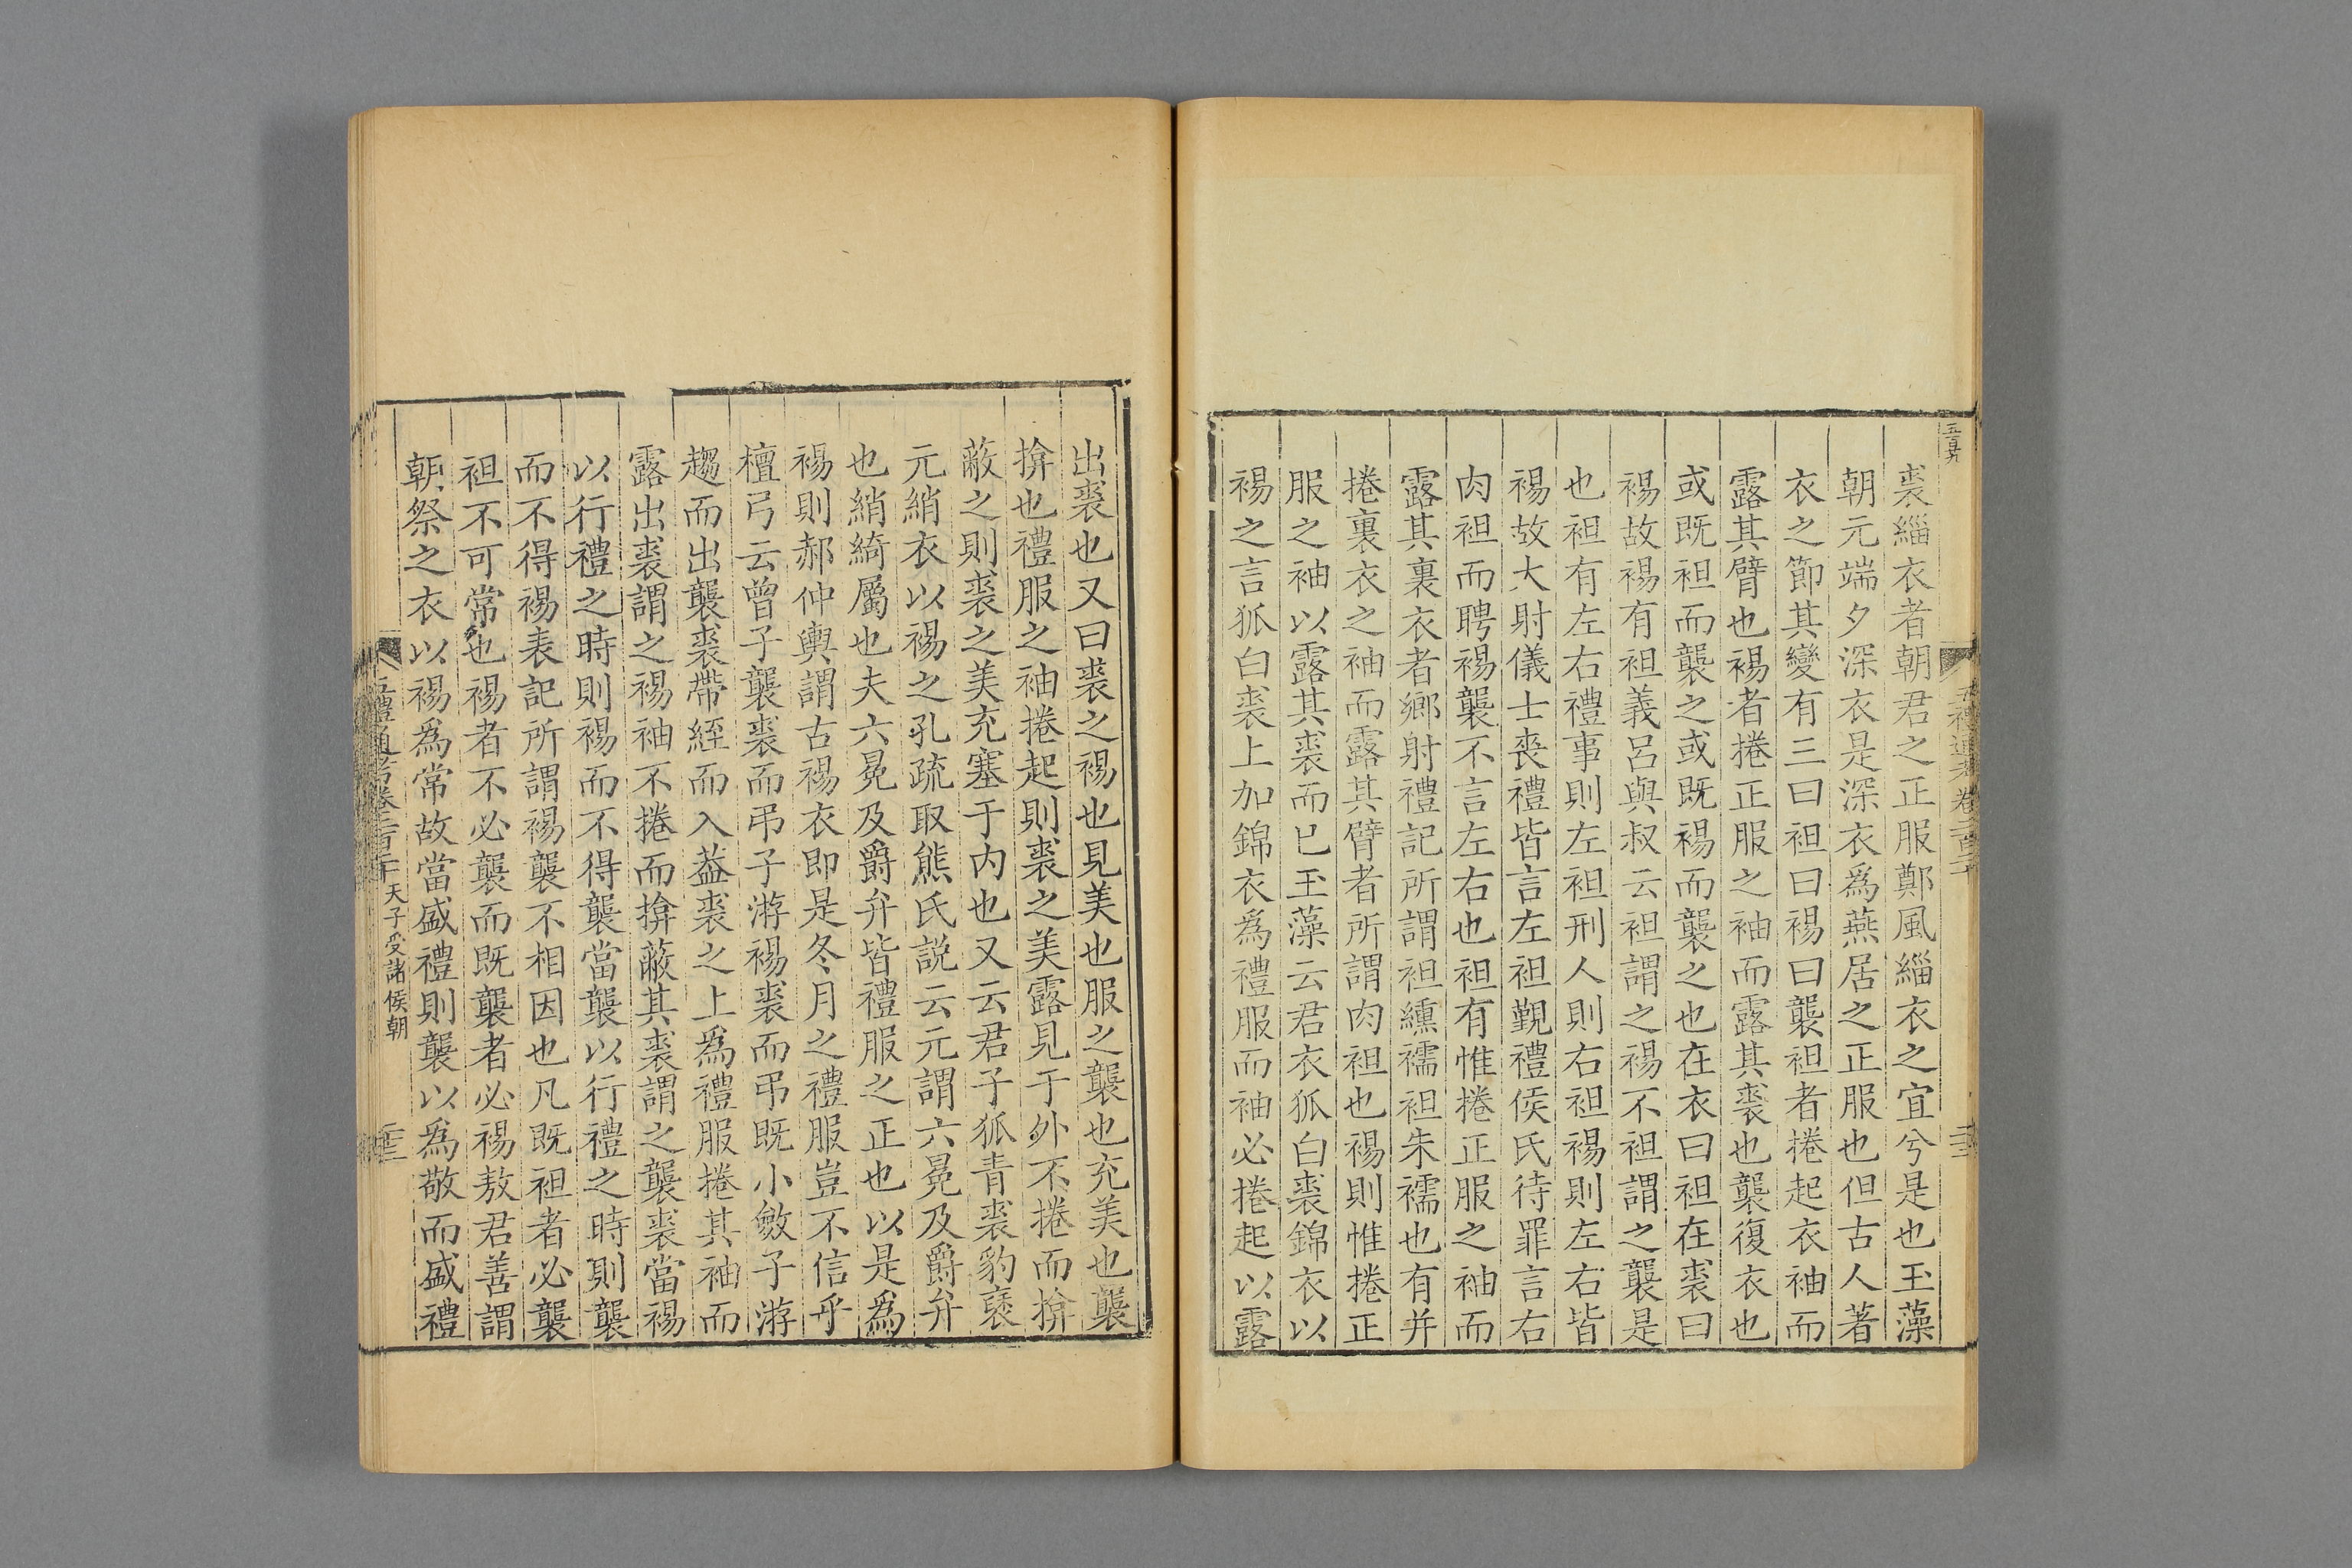 裘緇衣者朝君之正服鄭風緇衣之宜兮是也玉藻
朝元端夕深衣是深衣為燕居之正服也但古人著
衣之節其變有三曰袒曰裼曰襲袒者捲起衣袖而
露其臂也裼者捲正服之袖而露其裘也襲復衣也
或既袒而襲之或既裼而襲之也在衣曰袒在裘曰
裼故裼有袒義呂與叔云袒謂之裼不袒謂之襲是
也袒有左右禮事則左袒刑人則右袒裼則左右皆
裼故大射儀士喪禮皆言左袒觀禮侯氏待罪言右
肉袒而聘裼襲不言左右也袒有惟捲正服之袖而
露其裏衣者鄉射禮記所謂袒纁襦袒朱襦也有并
捲裏衣之袖而露其臂者所謂肉袒也裼則惟捲正
服之袖以露其裘而已玉藻云君衣狐白裘錦衣以
裼之言狐白裘上加錦衣為禮服而袖必捲起以露
出裘也又曰裘之裼也見美也服之襲也充美也襲
揜也禮服之袖捲起則裘之美露見于外不捲而揜
蔽之則裘之美充塞于內也又云君子狐青裘豹褎
元綃衣以裼之孔疏取熊氏說云元謂六冕及爵弁
也綃綺屬也夫六冕及爵弁皆禮服之正也以是為
裼則郝仲輿謂古裼衣即是冬月之禮服豈不信乎
檀弓云曾子襲裘而弔子游裼裘而弔既小斂子游
趨而出襲裘帶絰而入葢裘之上為禮服捲其袖而
露出裘謂之裼袖不捲而揜蔽其裘謂之襲裘當裼
以行禮之時則裼而不得襲當襲以行禮之時則襲
而不得裼表記所謂裼襲不相因也凡既袒者必襲
袒不可常也裼者不必襲而既襲者必裼敖君善謂
朝祭之衣以裼為常故當盛禮則襲以為敬而盛禮
五禮通考卷二百二十 天子受諸侯朝 二十三